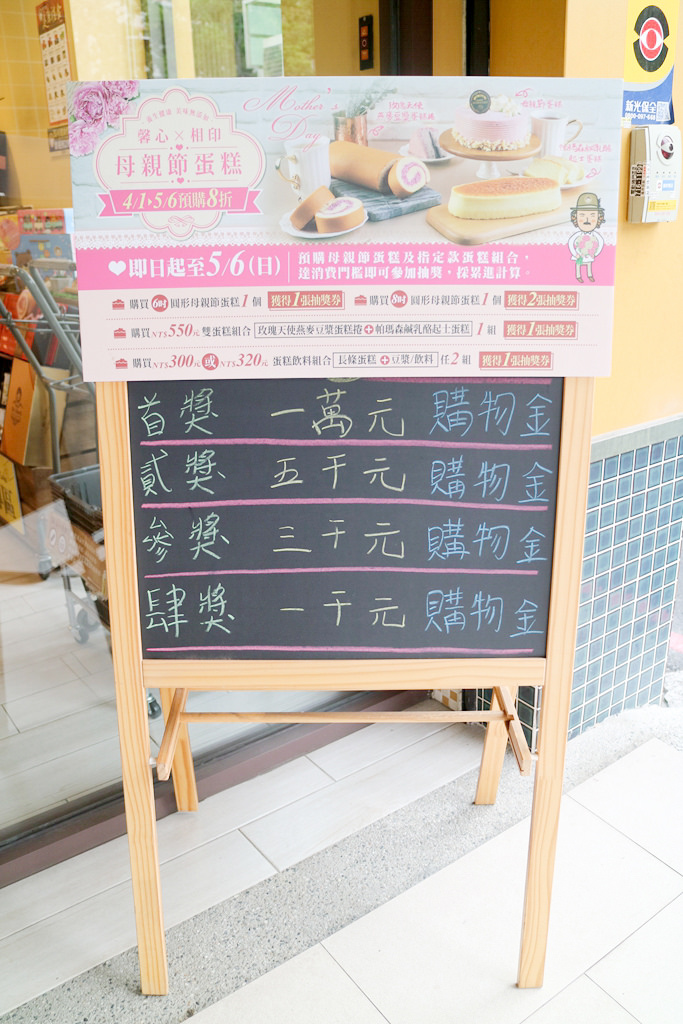 Mother's Day
馨心×相印
母親節蛋糕
4/1→5/6預購8折
即日起至5/6(日)
預購母親節蛋糕及指定款蛋糕組合，
達消費門檻即可參加抽獎，採累進計算。
購買6吋圓形母親節蛋糕1個 獲得1張抽獎券 購買8吋圓形母親節蛋糕1個 獲得2張抽獎券
購買NT$550元雙蛋糕組合 玫瑰天使燕麥豆漿蛋糕捲+帕瑪森鹹乳酪起士蛋糕 1組 獲得1張抽獎券
購買NT$300元或NT$320元 蛋糕飲料組合 長條蛋糕+豆漿/飲料 任2組 獲得1張抽獎券
首獎 一萬元 購物金
貳獎 五千元 購物金
參獎 三千元 購物金
肆獎 一千元 購物金
新光保全